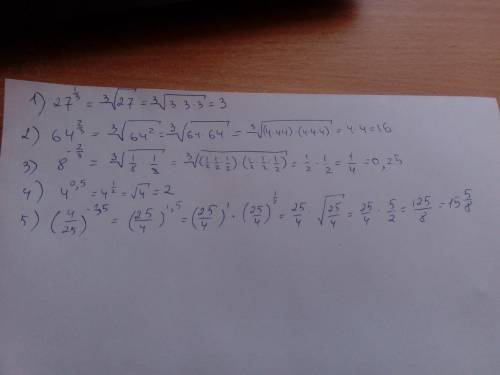 1) 27^{1/3} = ∛27 = ∛(3·3·3) = 3
2) 64^{2/3} = ∛(64²) = ∛(64·64) = ∛((4·4·4)·(4·4·4)) = 4·4 = 16
3) 8^{-2/3} = ∛(1/8 · 1/8) = ∛((1/2·1/2·1/2)·(1/2·1/2·1/2)) = 1/2 · 1/2 = 1/4 = 0,25
4) 4^{0,5} = 4^{1/2} = √4 = 2
5) (4/25)^{-1,5} = (25/4)^{1,5} = (25/4)^{1} · (25/4)^{1/2} = 25/4 · √(25/4) = 25/4 · 5/2 = 125/8 = 15 5/8